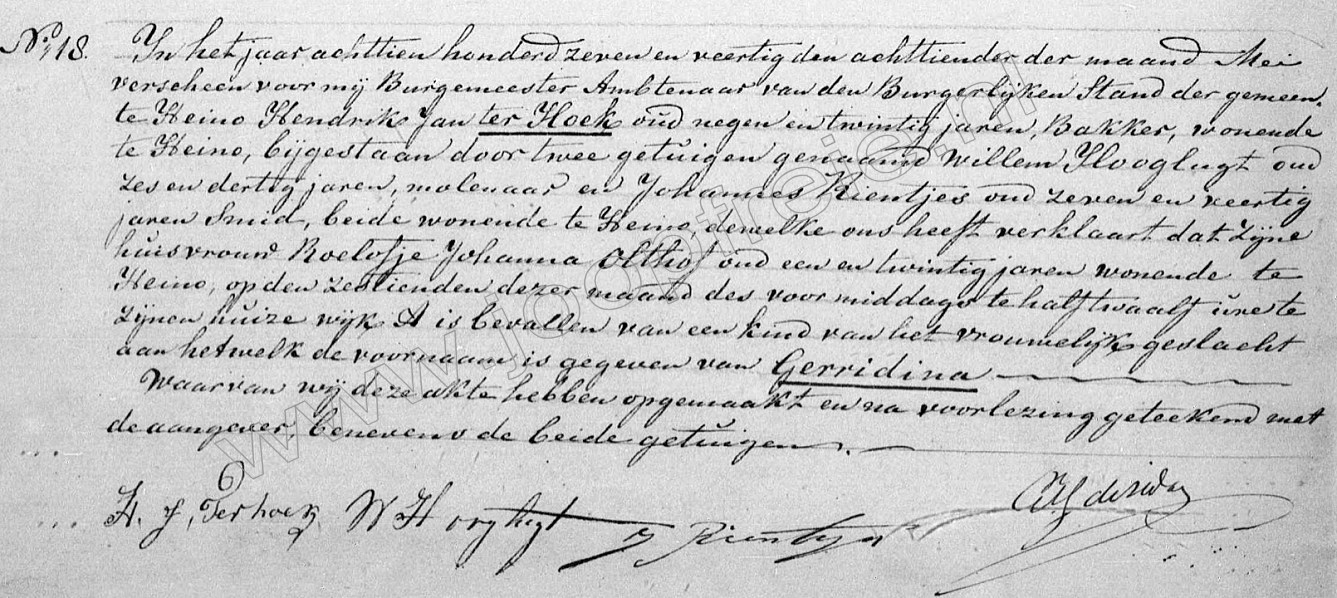 No. 18. In het jaar achttien honderd zeven en veertig den achttiender der maand Mei
verscheen voor mij Burgemeester Ambtenaar van den Burgerlijken Stand der gemeen-
te Heino Hendrik Jan ter Hoek oud negen en twintig jaren, Bakker, wonende
te Heino, bijgestaan door twee getuigen genaamd Willem Hooglugt oud
zes en dertig jaren, molenaar en Johannes Rientjes oud zeven en veertig
jaren Smid, beide wonende te Heino, dewelke ons heeft verklaart dat zijne
huisvrouw Roelofje Johanna Olthof oud een en twintig jaren wonende te
Heino, op den zestienden dezer maand des voormiddags te half twaalf ure te
zijnen huize wijk A is bevallen van een kind van het vrouwelijk geslacht
aan hetwelk de voornaam is gegeven van Gerridina
Waarvan wij deze akte hebben opgemaakt en na voorlezing geteekend met
de aangever benevens de beide getuigen.
H. J. Terhoek W Hooglugt J Rientjes
www.jooptreien.nl